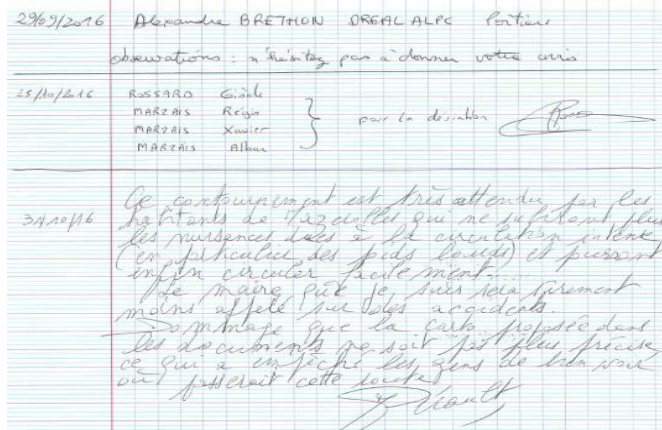 29/09/2016 Alexandre BRETHON DREAL ALPC Poitiers
observations : n'hésitez pas à donner votre avis
25/10/2016 ROSSARD Gisèle
MARZAIS Régis
MARZAIS Xavier
MARZAIS Alban
pour la déviation
31/10/16 Ce contournement est très attendu par les
habitants de qui ne subiront plus
les nuisances dues à la circulation intense
(en particulier des poids lourds) et pourront
enfin circuler facilement.
Le maire que je suis sera sûrement
moins appelé sur des accidents.
Dommage que la carte proposée dans
les documents ne soit pas plus précise
ce qui a empêché les gens de bien voir
où passerait cette route